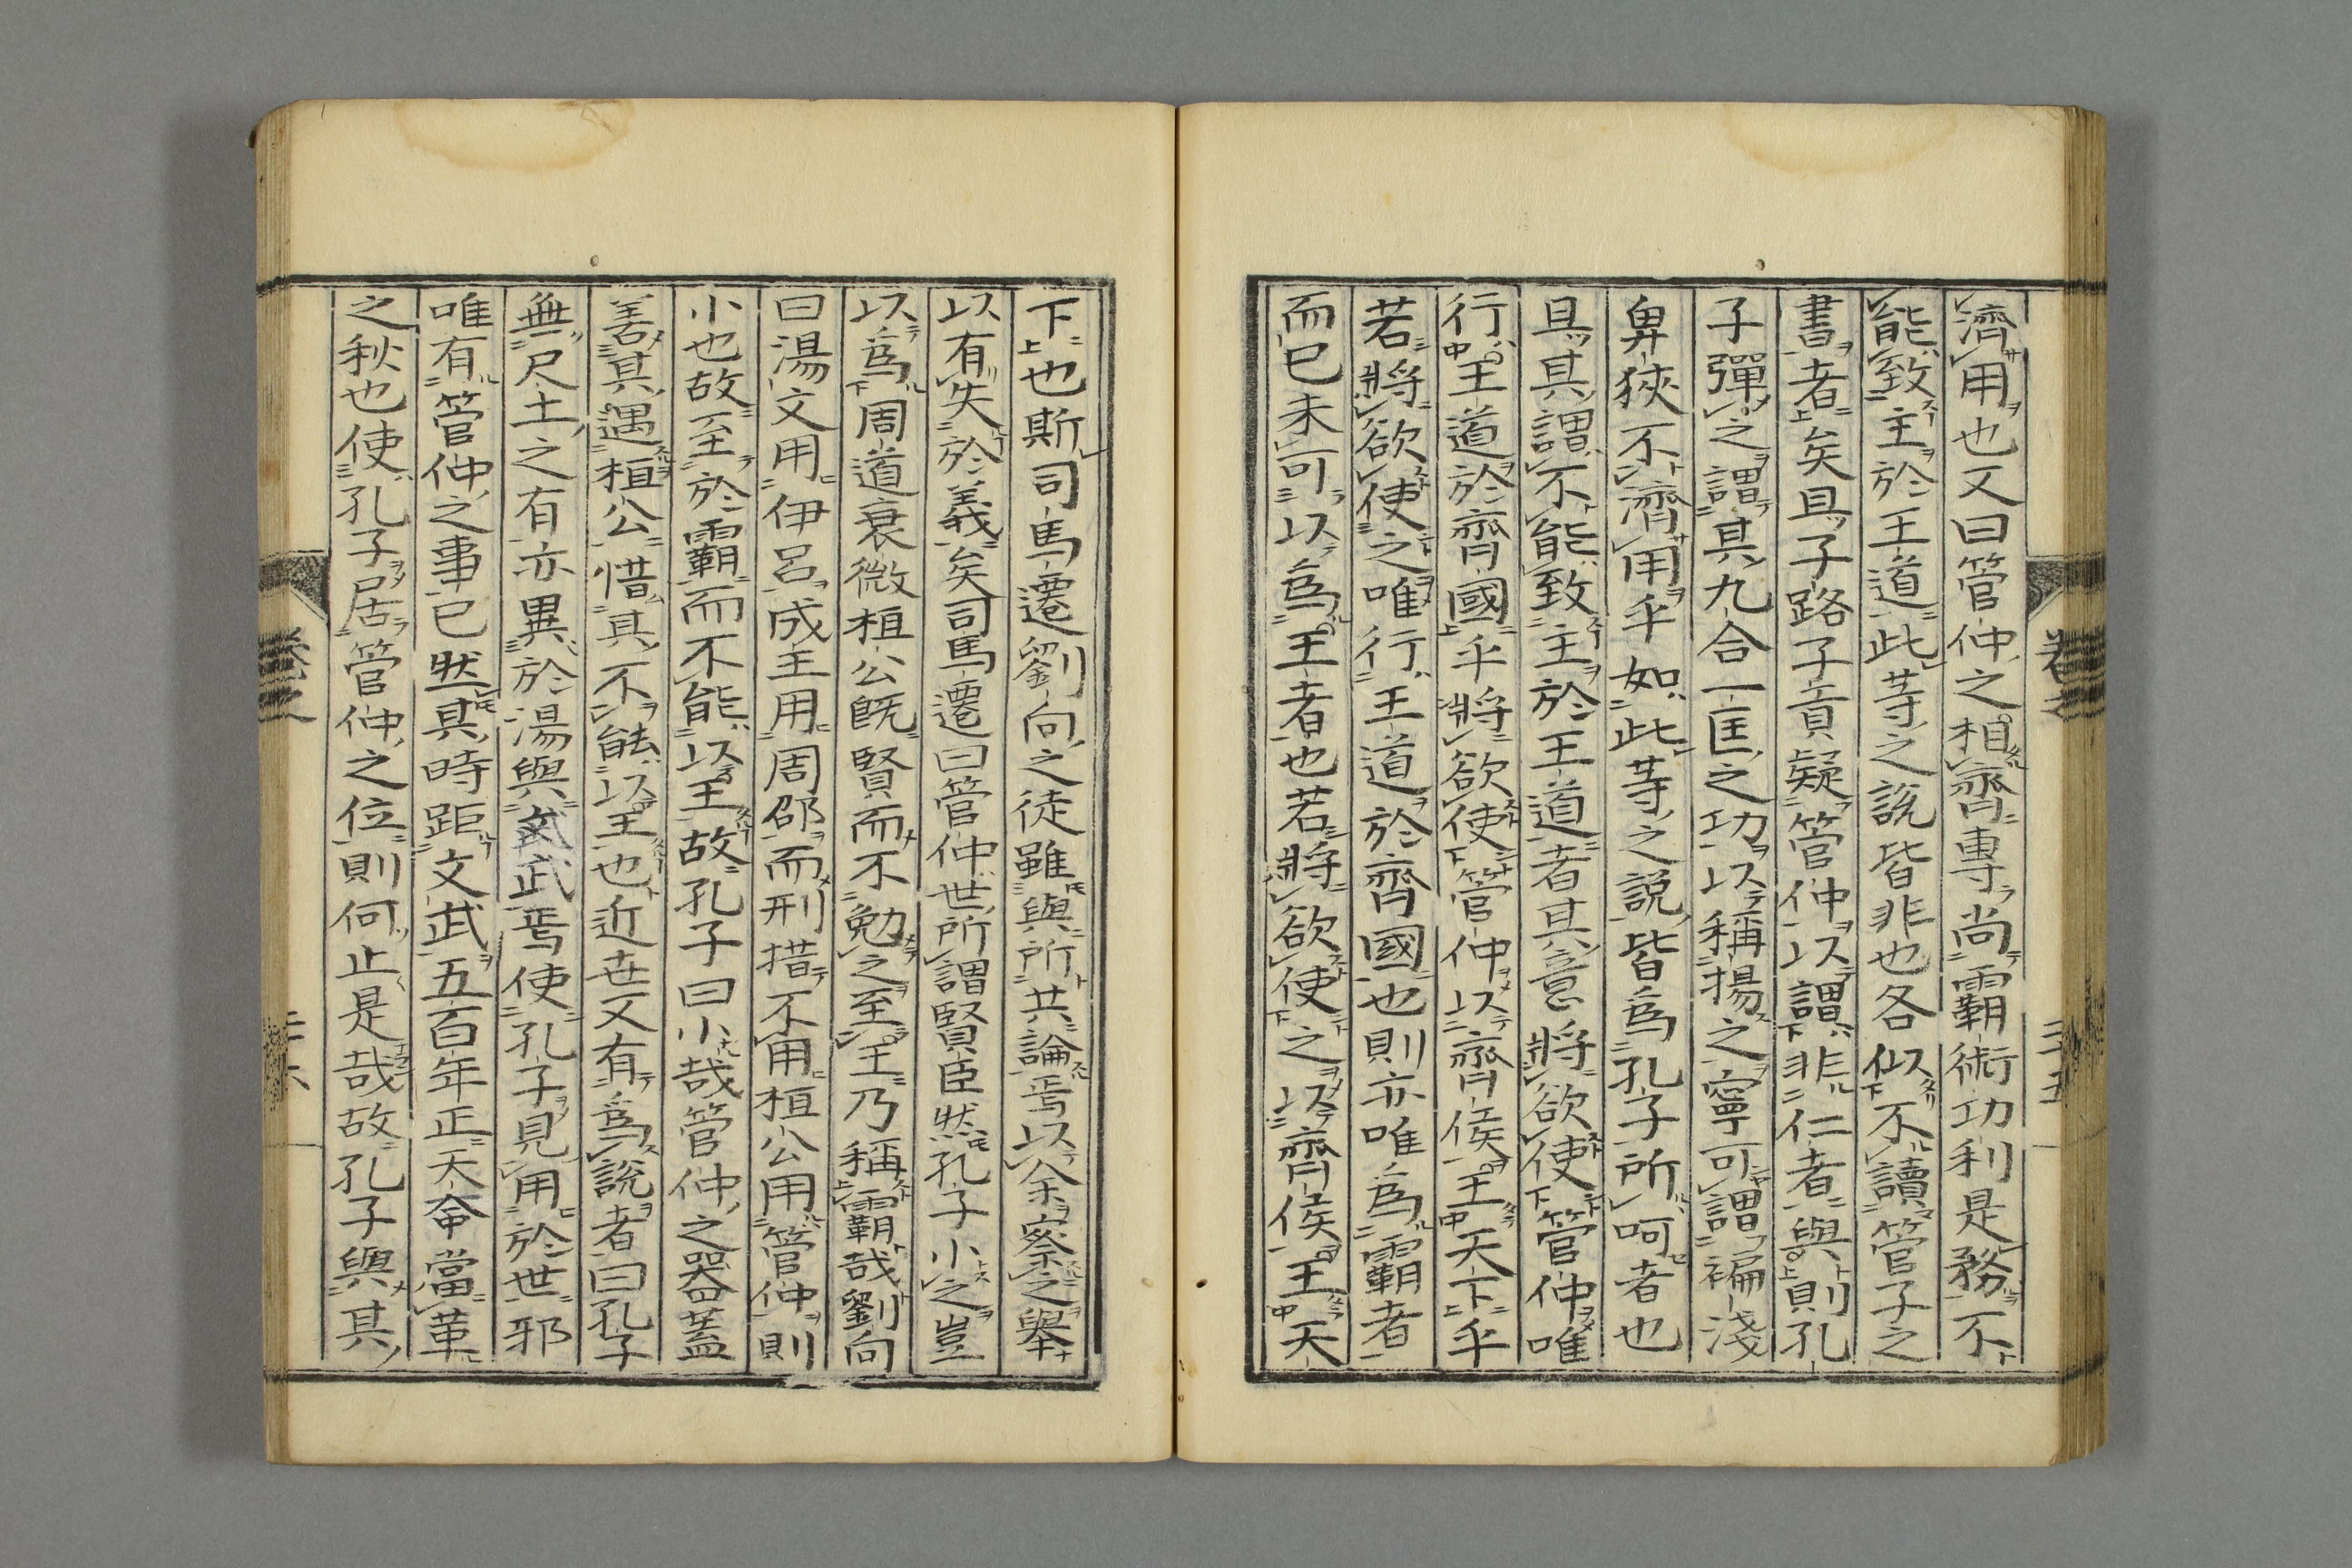 濟用也又曰管仲之相齊專尚霸術功利是務不
能致主於王道此等之説皆非也各似不讀管子之
書者矣且子路子貢疑管仲以謂非仁者與則孔
子彈之謂其九合一匡之功以稱揚之寧可謂褊淺
卑狹不濟用乎如此等之説皆爲孔子所呵者也
且其謂不能致主於王道者其意將欲使管仲唯
行王道於齊國乎將欲使管仲以齊侯王天下乎
若將欲使之唯行王道於齊國也則亦唯爲霸者
而已未可以爲王者也若將欲使之以齊侯王天
卷之
二十五
下也斯司馬遷劉向之徒雖與所共論焉以余察之舉
以有失於義矣司馬遷曰管仲世所謂賢臣然孔子小之豈
以爲周道衰微桓公既賢而不勉之至王乃稱霸哉劉向
曰湯文用伊呂成王用周邵而刑措不用桓公用管仲則
小也故至於霸而不能以王故孔子曰小哉管仲之器蓋
善其遇桓公惜其不能以王也近世又有爲説者曰孔子
無尺土之有亦異於湯與文武焉使孔子見用於世邪
唯有管仲之事已然其時距文武五百年正天命當革
之秋也使孔子居管仲之位則何止是哉故孔子與其
卷之
二十六